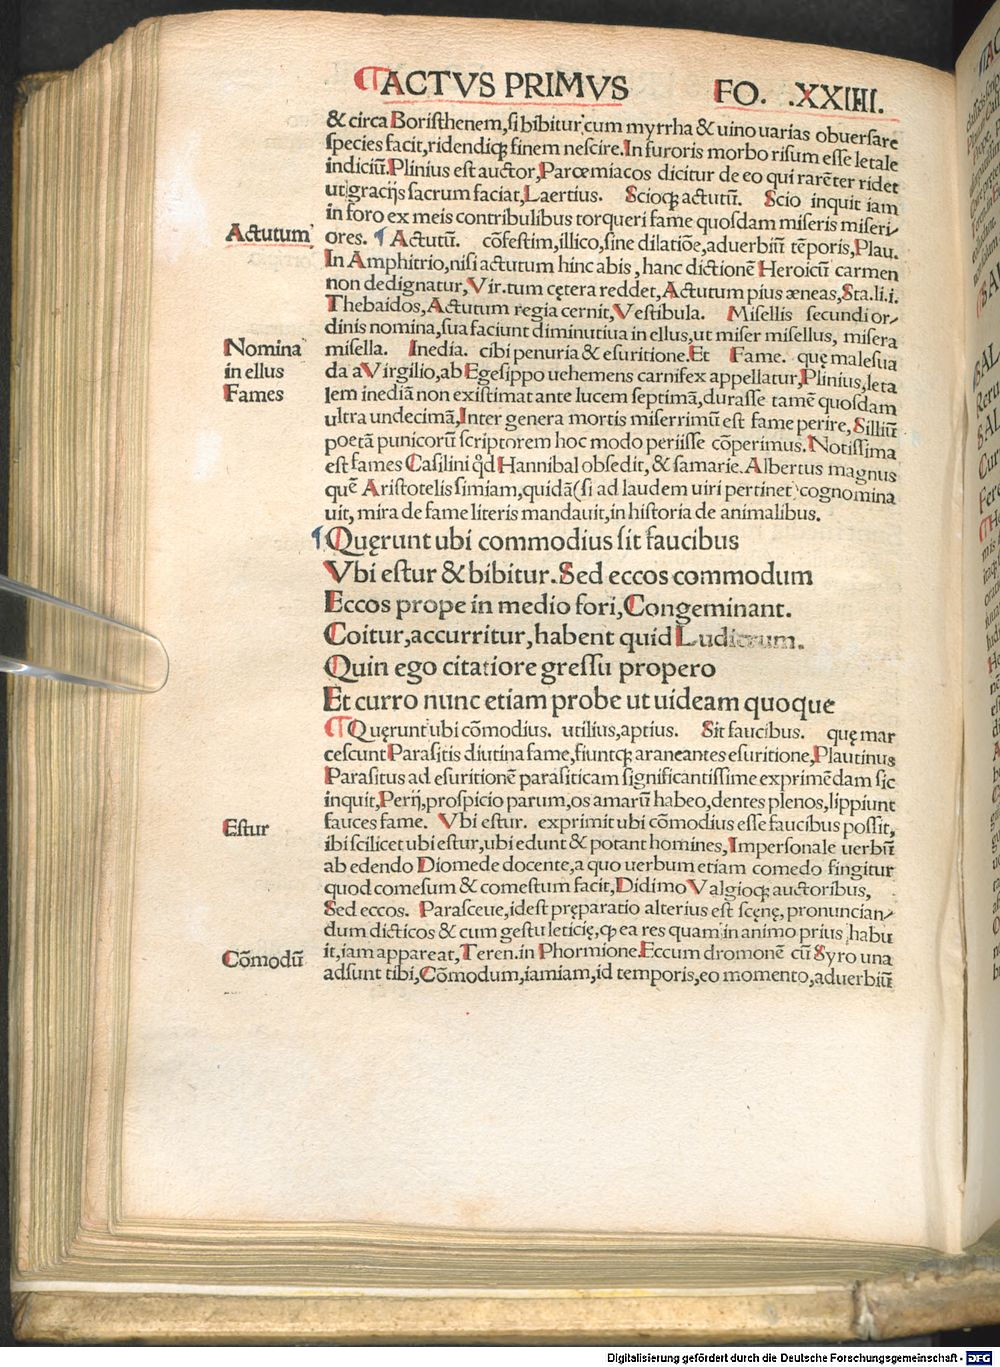 ¶ACTVS PRIMVS FO. .XXIIII.
& circa Boristhenem, si bibitur cum myrrha & uino uarias obuersare
species facit, ridendiqꝫ finem nescire. In furoris morbo risum esse letale
indiciū. Plinius est auctor, Parœmiacos dicitur de eo qui rarēter ridet
ut gracijs sacrum faciat, Laertius. Scioqꝫ actutū. Scio inquit iam
in foro ex meis contribulibus torqueri fame quosdam miseris miseri⸗
Actutum
ores. ¶ Actutū. cōfestim, illico, sine dilatiōe, aduerbiū tēporis, Plau.
In Amphitrio, nisi actutum hinc abis, hanc dictionē Heroicū carmen
non dedignatur, Vir. tum cętera reddet, Actutum pius æneas, Sta. li. i.
Thebaidos, Actutum regia cernit, Vestibula. Misellis secundi or⸗
dinis nomina, sua faciunt diminutiua in ellus, ut miser misellus, misera
Nomina
in ellus
Fames
misella. Inedia. cibi penuria & esuritione. Et Fame. quę malesua
da a Virgilio, ab Egesippo uehemens carnifex appellatur, Plinius, leta
lem inediā non existimat ante lucem septimā, durasse tamē quosdam
ultra undecimā, Inter genera mortis miserrimū est fame perire, Silliū
poetā punicorū scriptorem hoc modo periisse cōperimus. Notissima
est fames Casilini qđ Hannibal obsedit, & samarie. Albertus magnus
quē Aristotelis simiam, quidā (si ad laudem uiri pertinet) cognomina
uit, mira de fame literis mandauit, in historia de animalibus.
¶Quęrunt ubi commodius sit faucibus
Vbi estur & bibitur. Sed eccos commodum
Eccos prope in medio fori, Congeminant.
Coitur, accurritur, habent quid Ludicrum.
Quin ego citatiore gressu propero
Et curro nunc etiam probe ut uideam quoque
¶Quęrunt ubi cōmodius. utilius, aptius. Sit faucibus. quę mar
cescunt Parasitis diutina fame, fiuntqꝫ araneantes esuritione, Plautinus
Parasitus ad esuritionē parasiticam significantissime exprimēdam sic
inquit, Perij, prospicio parum, os amarū habeo, dentes plenos, lippiunt
Estur
fauces fame. Vbi estur. exprimit ubi cōmodius esse faucibus possit,
ibi scilicet ubi estur, ubi edunt & potant homines, Impersonale uerbū
ab edendo Diomede docente, a quo uerbum etiam comedo fingitur
quod comesum & comestum facit, Didimo Valgioqꝫ auctoribus,
Sed eccos. Parasceue, idest pręparatio alterius est scęnę, pronuncian⸗
dum dicticos & cum gestu leticię, ꝙ ea res quam in animo prius habu
Cōmodū
it, iam appareat, Teren. in Phormione. Eccum dromonē cū Syro una
adsunt tibi, Cōmodum, iamiam, id temporis, eo momento, aduerbiū
Digitalisierung gefördert durch die Deutsche Forschungsgemeinschaft - DFG